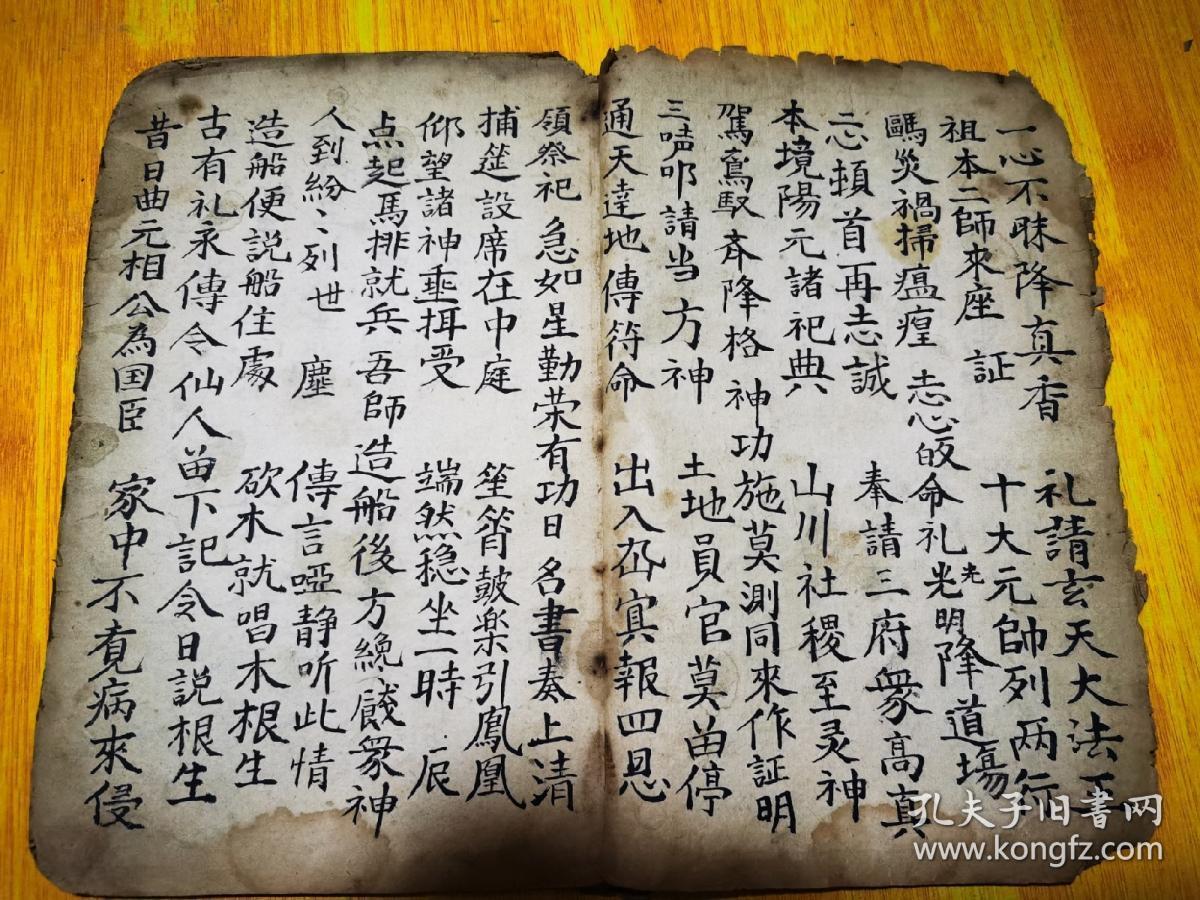 一心不昧降真香 礼請玄天大法王
祖本二師來座証 十大元帥列两行
災禍掃瘟瘟 志心皈命礼光明降道場
二心頓首再志誠 奉請三府衆高真
本境陽元諸祀典 山川社稷至灵神
駕鸞馭斉降格 神功施莫測同來作証明
三吽請当方神 土地員官莫畄停
通天達地傳符命 出入冥報四恩
領祭祀急如星勤荣有功日 名書奏上清
捕筵設席在中庭 笙簫皷楽引鳳凰
仰望諸神垂受 端然穏坐一時辰
点起馬排就兵 吾師造船後方纔餞衆神
人到紛〻列世塵 傳言啞静听此情
造船便説船住處 砍木就唱木根生
古有礼永傳今 仙人畄下記今日説根生
昔日曲元相公為国臣 家中不覚病來侵
孔夫子旧书网
www.kongfz.com